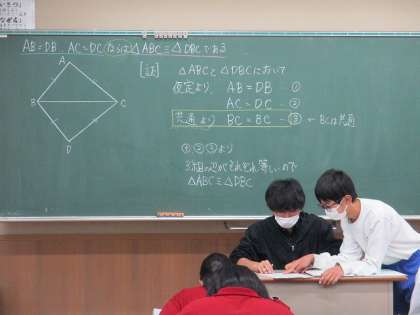 AB=DB, AC=DC ならば △ABC≡△DBCである
A
B
C
D
[証] △ABCと△DBCにおいて
仮定より, AB=DB ―①
AC=DC ―②
共通より BC=BC ―③ ← BCは共通
①②③より
3組の辺がそれぞれ等しいので
△ABC≡△DBC